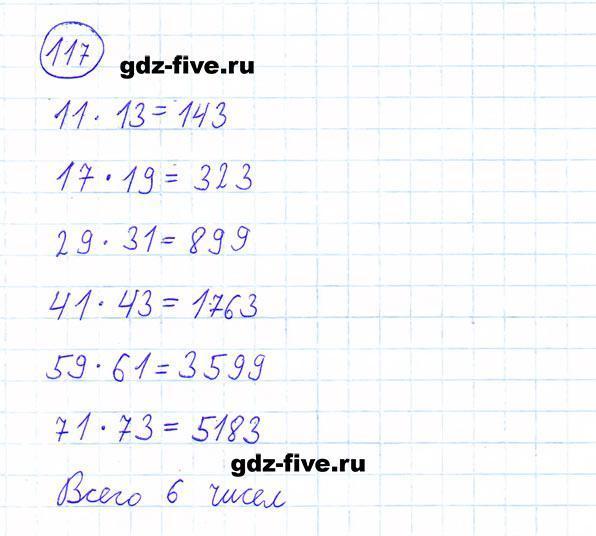 117
gdz-five.ru
11 · 13 = 143
17 · 19 = 323
29 · 31 = 899
41 · 43 = 1763
59 · 61 = 3599
71 · 73 = 5183
gdz-five.ru
Всего 6 чисел